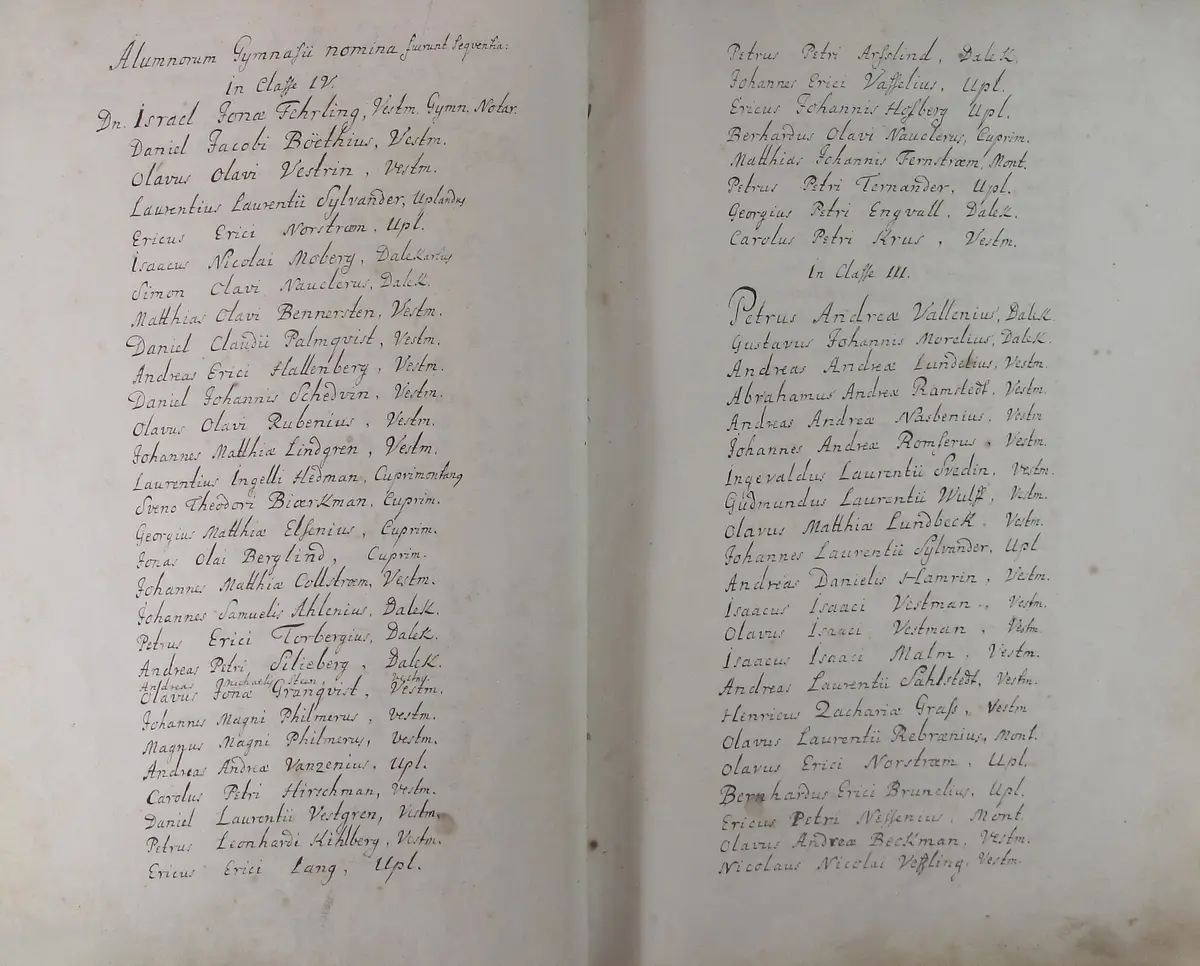 Alumnorum Gymnasii nomina fuerunt seqventia:
In Classe IV.
Dn. Israel Jonæ Fehrling, Vestm. Gymn. Notar.
Daniel Jacobi Böethius, Vestm.
Olavus Olavi Vestrin, Vestm.
Laurentius Laurentii Sylvander, Uplandus
Ericus Erici Norstrœm, Upl.
Isaacus Nicolai Moberg, Dalekarlus
Simon Olavi Nauclerus, Dalek.
Matthias Olavi Bennersten, Vestm.
Daniel Claudii Palmqvist, Vestm.
Andreas Erici Hallenberg, Vestm.
Daniel Johannis Schedvin, Vestm.
Olavus Olavi Rubenius, Vestm.
Johannes Matthiæ Lindgren, Vestm.
Laurentius Ingelli Hedman, Cuprimontang
Sveno Theodori Biœrkman, Cuprim.
Georgius Matthiæ Elfenius, Cuprim.
Jonas Olai Berglind, Cuprim.
Johannes Matthiæ Collstrœm, Vestm.
Johannes Samuelis Ahlenius, Dalek.
Petrus Erici Torbergius, Dalek.
Andreas Petri Silieberg, Dalek.
Andreas Michaelis Steen, Vestm.
Olavus Jonæ Granqvist, Vestm.
Johannes Magni Philmerus, Vestm.
Magnus Magni Philmerus, Vestm.
Andreas Andreæ Vanzenius, Upl.
Carolus Petri Hirschman, Vestm.
Daniel Laurentii Vestgren, Vestm.
Petrus Leonhardi Kihlberg, Vestm.
Ericus Erici Lang, Upl.
Petrus Petri Arfslind, Dalek.
Johannes Erici Vasselius, Upl.
Ericus Johannis Hofberg Upl.
Berhardus Olavi Nauclerus, Cuprim.
Matthias Johannis Fernstrœm, Mont.
Petrus Petri Ternander, Upl.
Georgius Petri Engvall, Dalek.
Carolus Petri Krus, Vestm.
In Classe III.
Petrus Andreæ Vallenius, Dalek.
Gustavus Johannis Morelius, Dalek.
Andreas Andreæ Lundelius, Vestm.
Abrahamus Andreæ Ramstedt, Vestm.
Andreas Andreæ Nasbenius, Vestm
Johannes Andreæ Romserus, Vestm.
Ingevaldus Laurentii Svedin, Vestm.
Gudmundus Laurentii Wulff, Vestm.
Olavus Matthiæ Lundbeck, Vestm.
Johannes Laurentii Sylvander, Upl
Andreas Danielis Hamrin, Vestm.
Isaacus Isaaci Vestman, Vestm.
Olavus Isaaci Vestman, Vestm.
Isaacus Isaaci Malm, Vestm.
Andreas Laurentii Sahlstedt, Vestm.
Henricus Zachariæ Grass, Vestm
Olavus Laurentii Rebrænius, Mont.
Olavus Erici Norstrœm, Upl.
Bernhardus Erici Brunelius, Upl.
Ericus Petri Nessenius, Mont
Olavus Andreæ Beckman, Vestm.
Nicolaus Nicolai Vessling, Vestm.